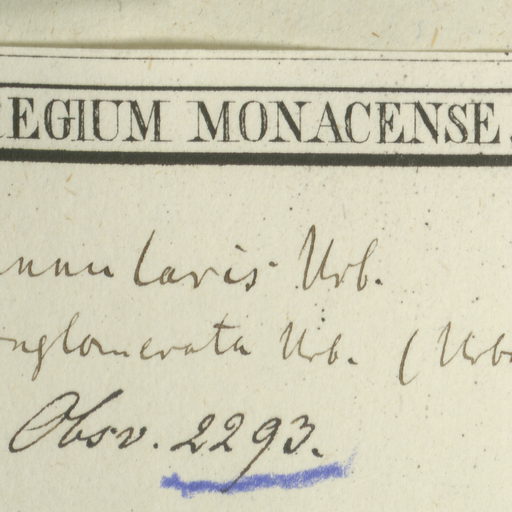 REGIUM MONACENSE.
annularis Urb.
onglomerata Urb. (Urb
Obsv. 2293.